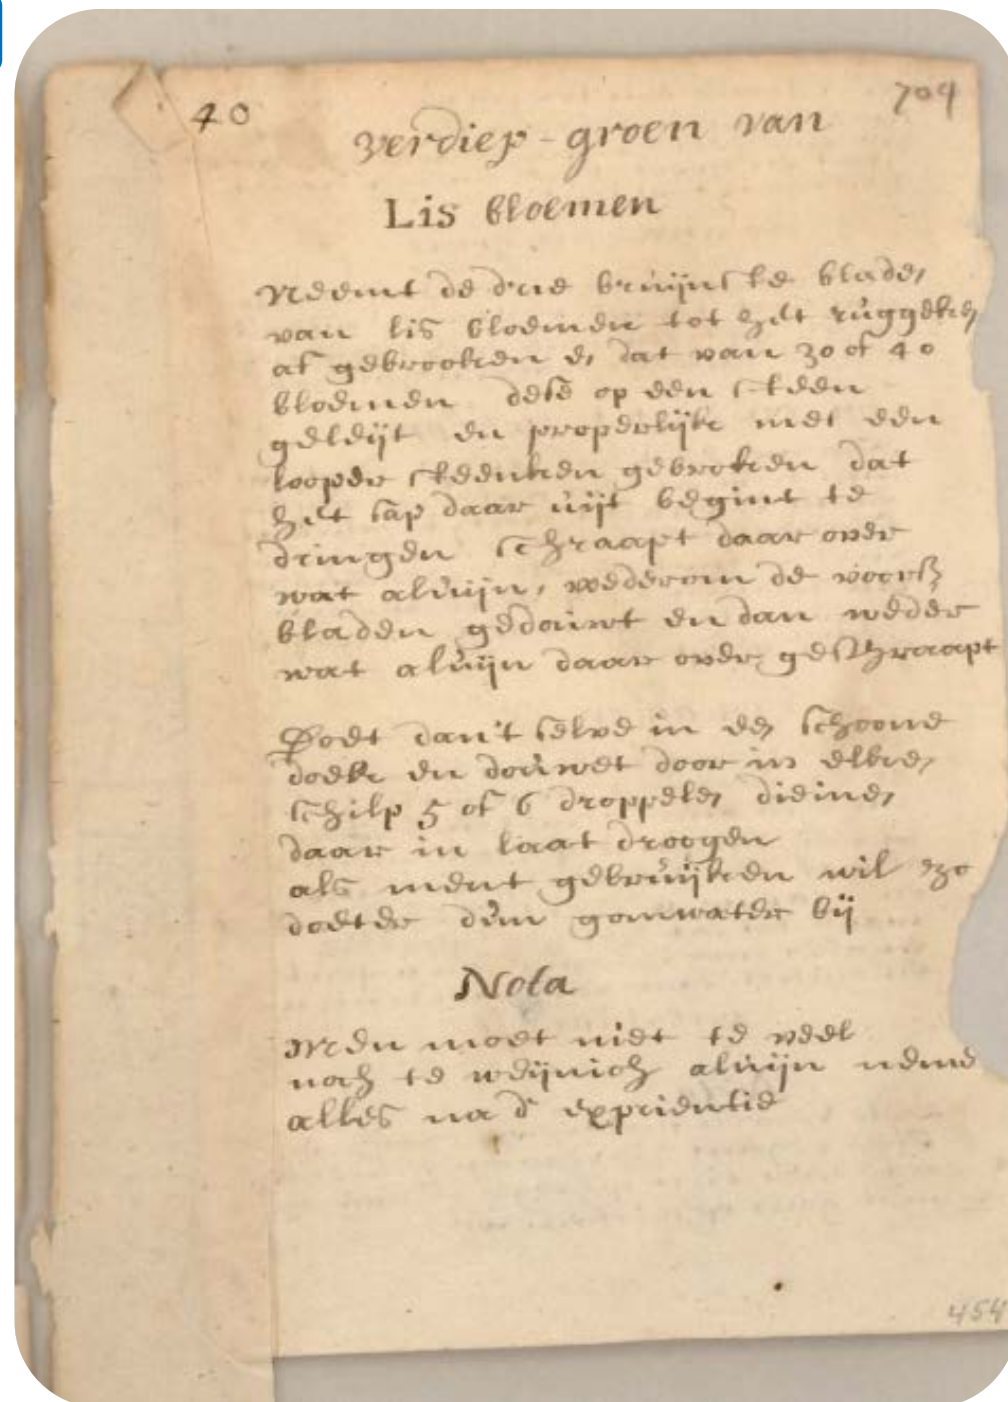 40
704
verdiep-groen van
Lis bloemen
Neemt de drie bruijnste blade,
van lis bloemen tot het ruggeke,
af gebrooken e, dat van 30 of 40
bloemen dese op een steen
geleijt en properlijk met een
looper steenken gebroken dat
het sap daar uijt begint te
dringen schraapt daar over
wat aluijn, wederom de voors
bladen gedouwt en dan weder
wat aluijn daar over geschraapt
Doet dan't selve in ee, schoone
doek en douwet door in elke,
schilp 5 of 6 droppele, die ine,
daar in laat droogen
als ment gebruijken wil zo
doeter dun gomwater bij
Nota
Men moet niet te veel
noch te weijnich aluijn neme
alles na d experientie
454